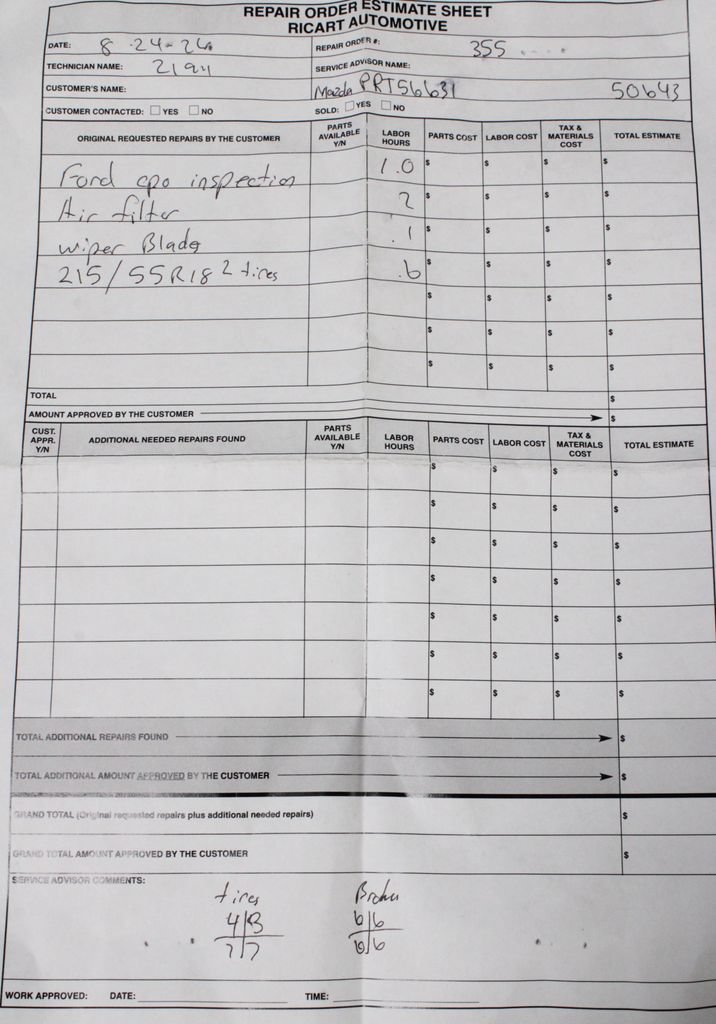 REPAIR ORDER ESTIMATE SHEET
RICART AUTOMOTIVE
DATE: 8-24-26 REPAIR ORDER #: 355
TECHNICIAN NAME: SERVICE ADVISOR NAME:
CUSTOMER'S NAME: Mazda PRT56631 50643
CUSTOMER CONTACTED: YES NO SOLD: YES NO
ORIGINAL REQUESTED REPAIRS BY THE CUSTOMER PARTS AVAILABLE Y/N LABOR HOURS PARTS COST LABOR COST TAX & MATERIALS COST TOTAL ESTIMATE
Ford cpo inspection 1.0 $ $ $ $
Air filter 2 $ $ $ $
wiper Blade .1 $ $ $ $
215/55R18 2 tires .6 $ $ $ $
$ $ $ $
$ $ $ $
$ $ $ $
TOTAL $
AMOUNT APPROVED BY THE CUSTOMER $
CUST. APPR. Y/N ADDITIONAL NEEDED REPAIRS FOUND PARTS AVAILABLE Y/N LABOR HOURS PARTS COST LABOR COST TAX & MATERIALS COST TOTAL ESTIMATE
$ $ $ $
$ $ $ $
$ $ $ $
$ $ $ $
$ $ $ $
$ $ $ $
$ $ $ $
TOTAL ADDITIONAL REPAIRS FOUND $
TOTAL ADDITIONAL AMOUNT APPROVED BY THE CUSTOMER $
GRAND TOTAL (Original requested repairs plus additional needed repairs) $
GRAND TOTAL AMOUNT APPROVED BY THE CUSTOMER $
SERVICE ADVISOR COMMENTS:
tires Brakes
4|3 6|6
7|7 6|6
WORK APPROVED: DATE: TIME: